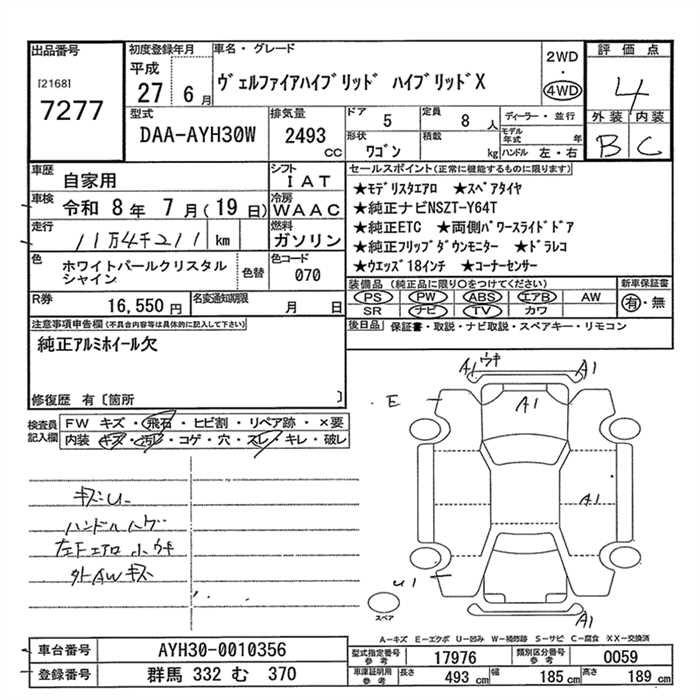 出品番号
[2168]
7277
初度登録年月
平成
27 6月
車名・グレード
ヴェルファイアハイブリッド ハイブリッドX
2WD
・
4WD
評価点
4
外装 内装
B C
型式
DAA-AYH30W
排気量
2493 cc
ドア
5
定員
8 人
形状
ワゴン
積載
kg
ディーラー・並行
モデル年式 年
ハンドル 左・右
車歴
自家用
車検
令和 8年 7月(19日)
走行
11万4千211 km
色
ホワイトパールクリスタル
シャイン
色替
シフト
IAT
冷房
WAAC
燃料
ガソリン
色コード
070
R券
16,550円
名変通知期限
月 日
セールスポイント(正常に機能するものに限ります)
★モデリスタエアロ ★スペアタイヤ
★純正ナビNSZT-Y64T
★純正ETC ★両側パワースライドドア
★純正フリップダウンモニター ★ドラレコ
★ウエッズ18インチ ★コーナーセンサー
装備品(純正品に限り○をつけてください)
PS PW ABS エアB AW
SR ナビ TV カワ
新車保証書
有・無
後日品 保証書・取説・ナビ取説・スペアキー・リモコン
注意事項申告欄(不具合内容等は具体的に記入して下さい)
純正アルミホイール欠
修復歴 有〔箇所 〕
検査員
記入欄
FW キズ・飛石・ヒビ割・リペア跡・×要
内装 キズ・汚レ・コゲ・穴・スレ・キレ・破レ
キズ・U
ハンドルハゲ
左Fエアロ小ウキ
外AWキズ
A1 ウキ A1
E
A1
A1
U1
A1
スペア
A-キズ E-エクボ U-凹み W-補修跡 S-サビ C-腐食 XX-交換済
車台番号
AYH30-0010356
登録番号
群馬 332 む 370
型式指定番号
参考
17976
類別区分番号
参考
0059
車庫証明用
参考
長さ 493 cm
幅 185 cm
高さ 189 cm